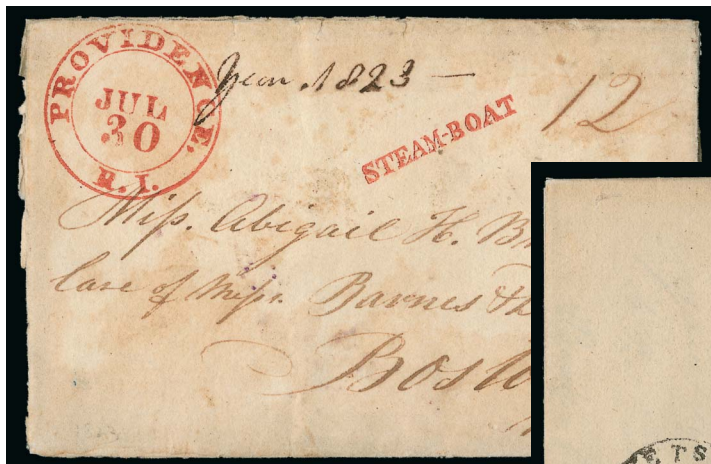 PROVIDENCE, R.I.
JUL
30
Year 1823 —
STEAM-BOAT
12
Miss. Abigail H.
Care of Messr. Barnes &
Bost
ETS